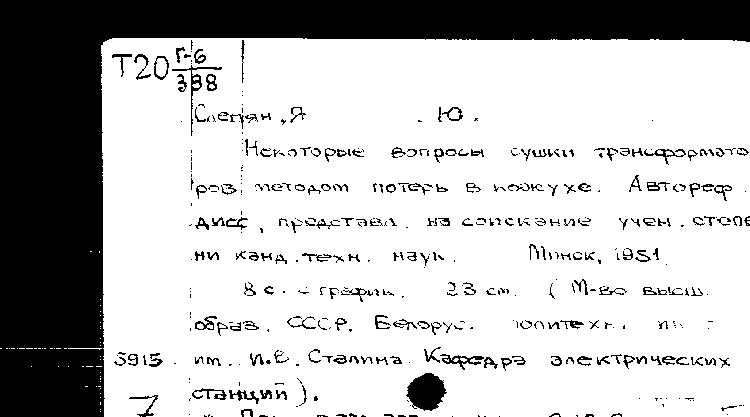 Т20 Г-6
388
Слепян, Я. Ю.
Некоторые вопросы сушки трансформато
ров методом потерь в кожухе. Автореф.
дисс., представл. на соискание учен. степе
ни канд. техн. наук. Минск, 1951.
8 с. с график. 23 см. (М-во высш.
образ. СССР. Белорус. политехн. ин-т
3915 им. И.В. Сталина. Кафедра электрических
7 станций).